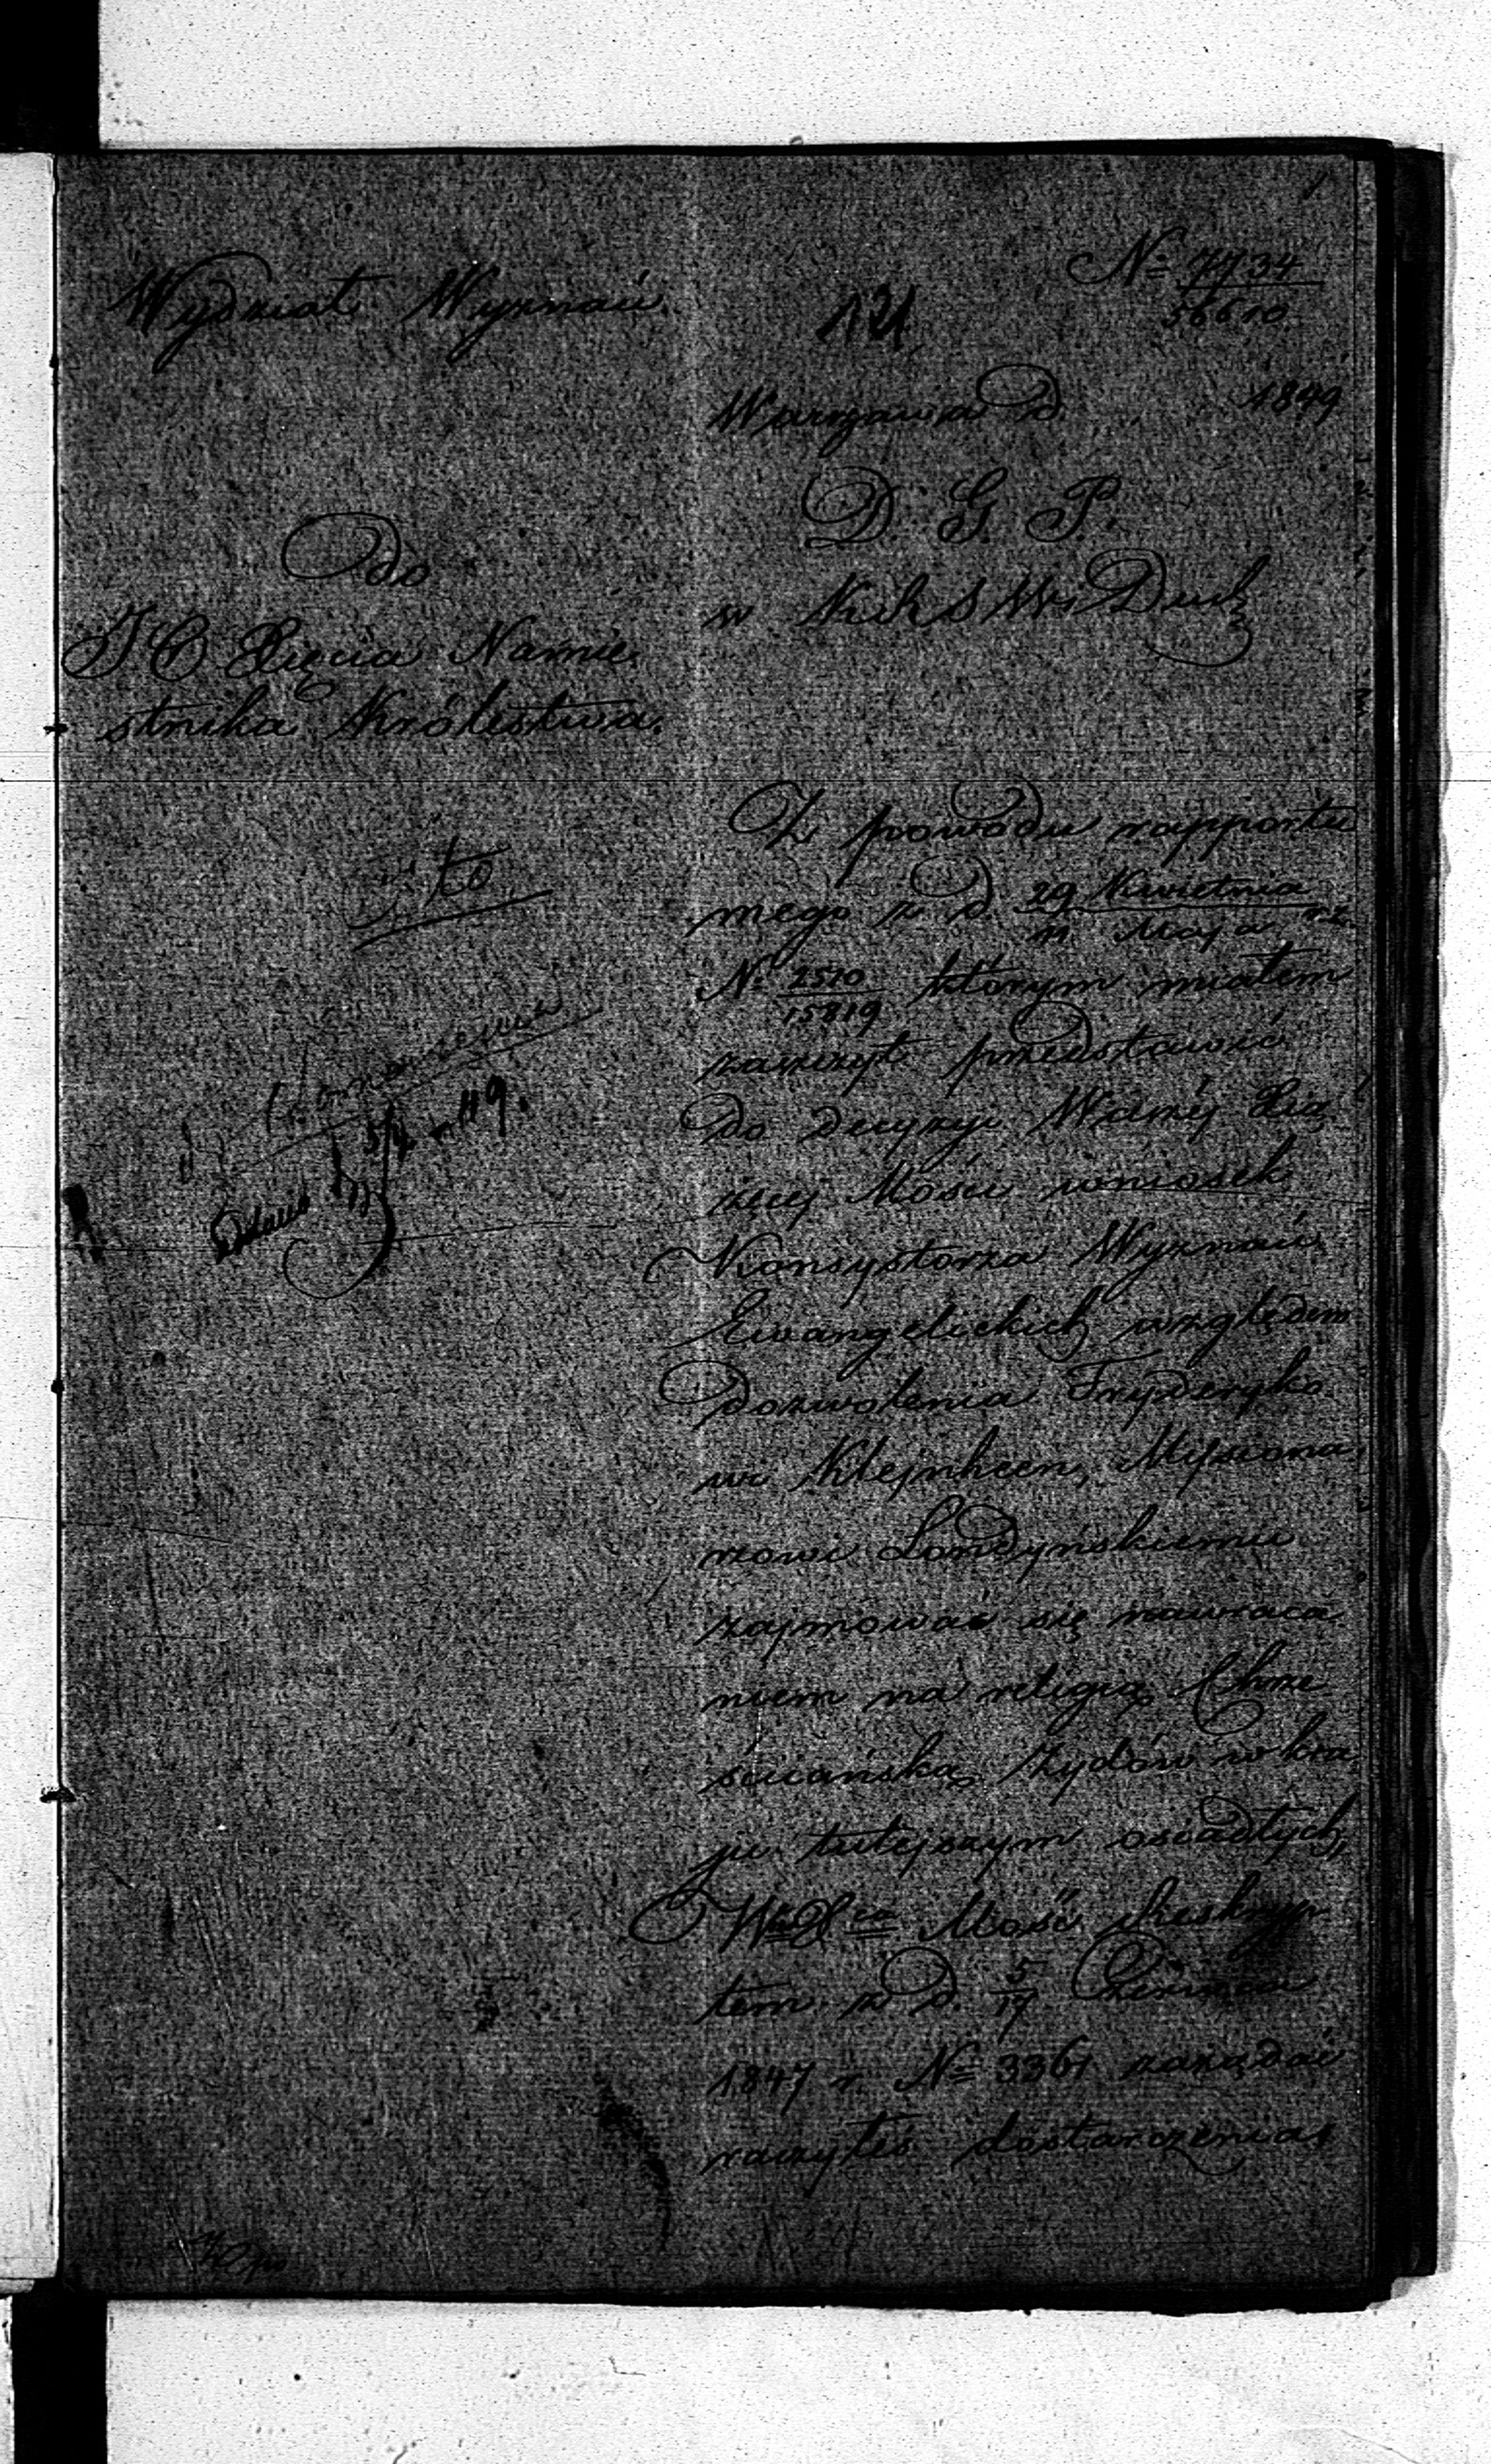 Wydział Wyznań.
№ 7734
56610
121
Warszawa d. 1849
D. G. P.
w K R S W i Duch
Do
J O Xięcia Namie-
stnika Królestwa.
Z powodu rapportu
mego z d. 29 Kwietnia
11 Maja r. z.
№ 2510
15819 którym miałem
zaszczyt przedstawić
do decyzyi Waszéj Xią-
żęcej Mości wniosek
Konsystorza Wyznań
Ewangelickich względem
dozwolenia Fryderyko-
wi Klejnheen, Missiona-
rzowi Londyńskiemu
zajmować się nawraca-
niem na religią Chrze-
ściańską Żydów w kra-
ju tutejszym osiadłych,
W. X. Mość Reskryp-
tem z d. 5
17
1847 r. № 3361 zażądać
raczyłeś dostarczenia
cito
49.